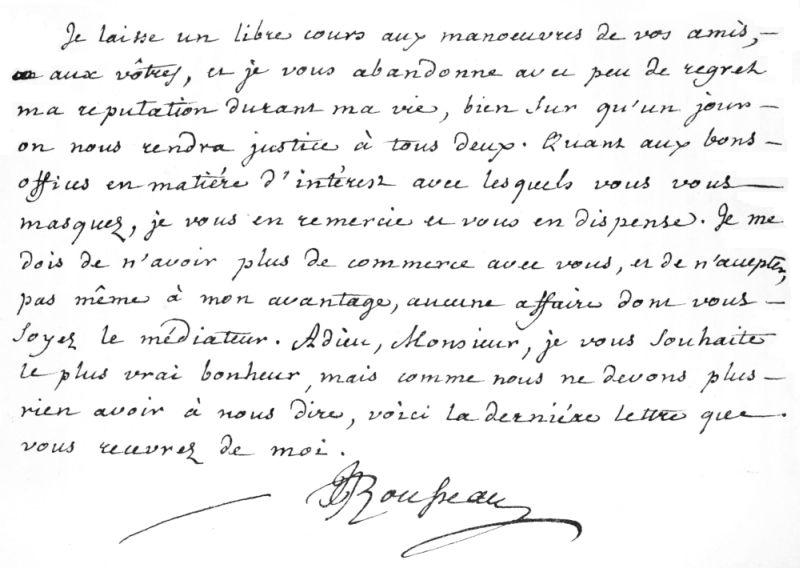 Je laisse un libre cours aux manoeuvres de vos amis, –
aux vôtres, et je vous abandonne avec peu de regret
ma reputation durant ma vie, bien sur qu'un jour –
on nous rendra justice à tous deux. Quant aux bons –
offices en matiére d'intérest avec lesquels vous vous —
masquez, je vous en remercie et vous en dispense. Je me
dois de n'avoir plus de commerce avec vous, et de n'accepter,
pas même à mon avantage, aucune affaire dont vous –
soyez le médiateur. Adieu, Monsieur, je vous souhaite
le plus vrai bonheur, mais comme nous ne devons plus –
rien avoir à nous dire, voici la derniére lettre que
vous recevrez de moi.
JJRousseau